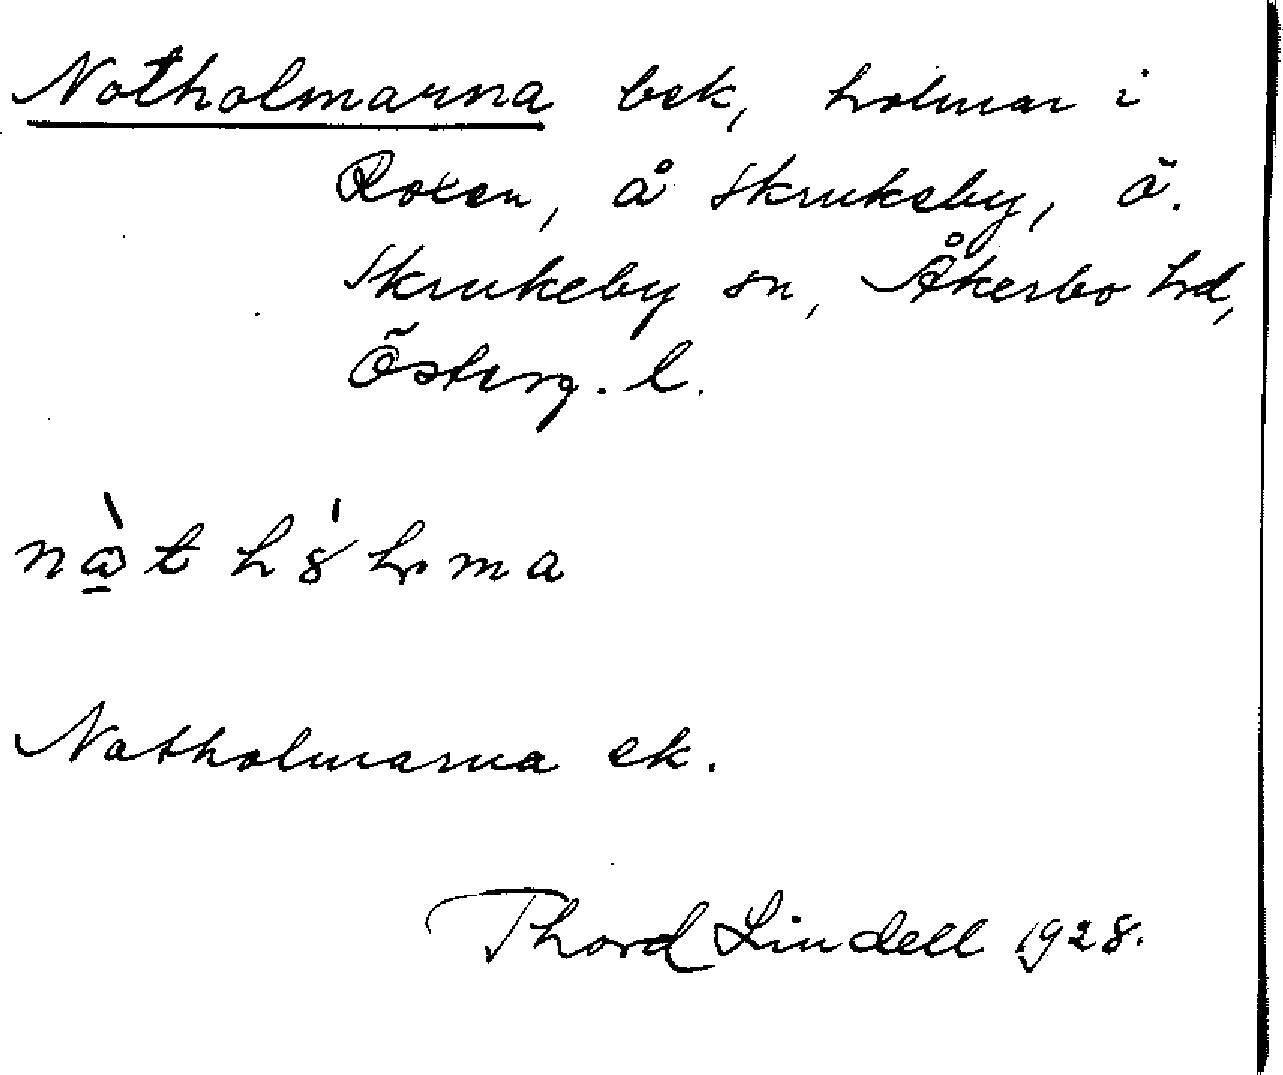 Notholmarna bek, holmar i
Roxen, å Skrukeby, ö.
Skrukeby sn, Åkerbo hd,
Österg. l.
Notholmarna ek.
Thord Lindell 1928.